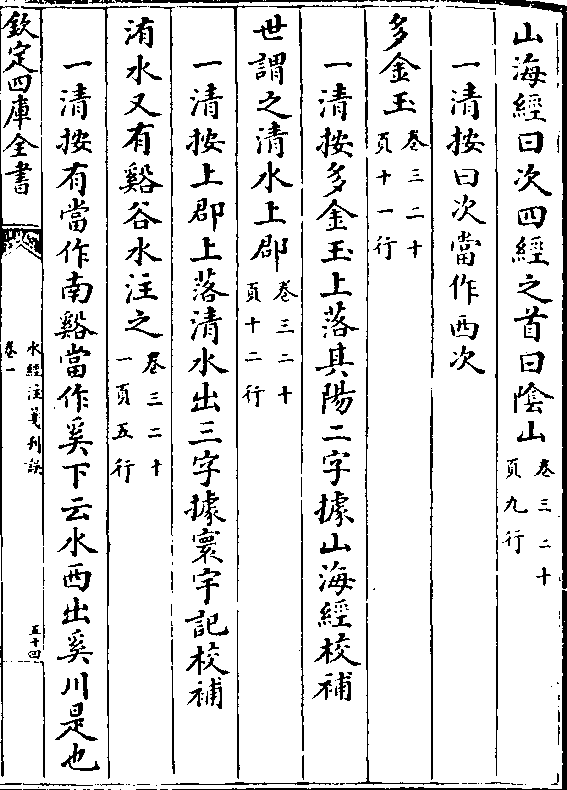 山海經曰次四經之首曰陰山卷三二十頁九行
一清按曰次當作西次
多金玉卷三二十頁十一行
一清按多金玉上落其陽二字據山海經校補
世謂之清水上郡卷三二十頁十二行
一清按上郡上落清水出三字據寰宇記校補
洧水又有谿谷水注之卷三二十一頁五行
一清按有當作南谿當作奚下云水西出奚川是也
欽定四庫全書
水經注箋刊誤
卷一
五十四